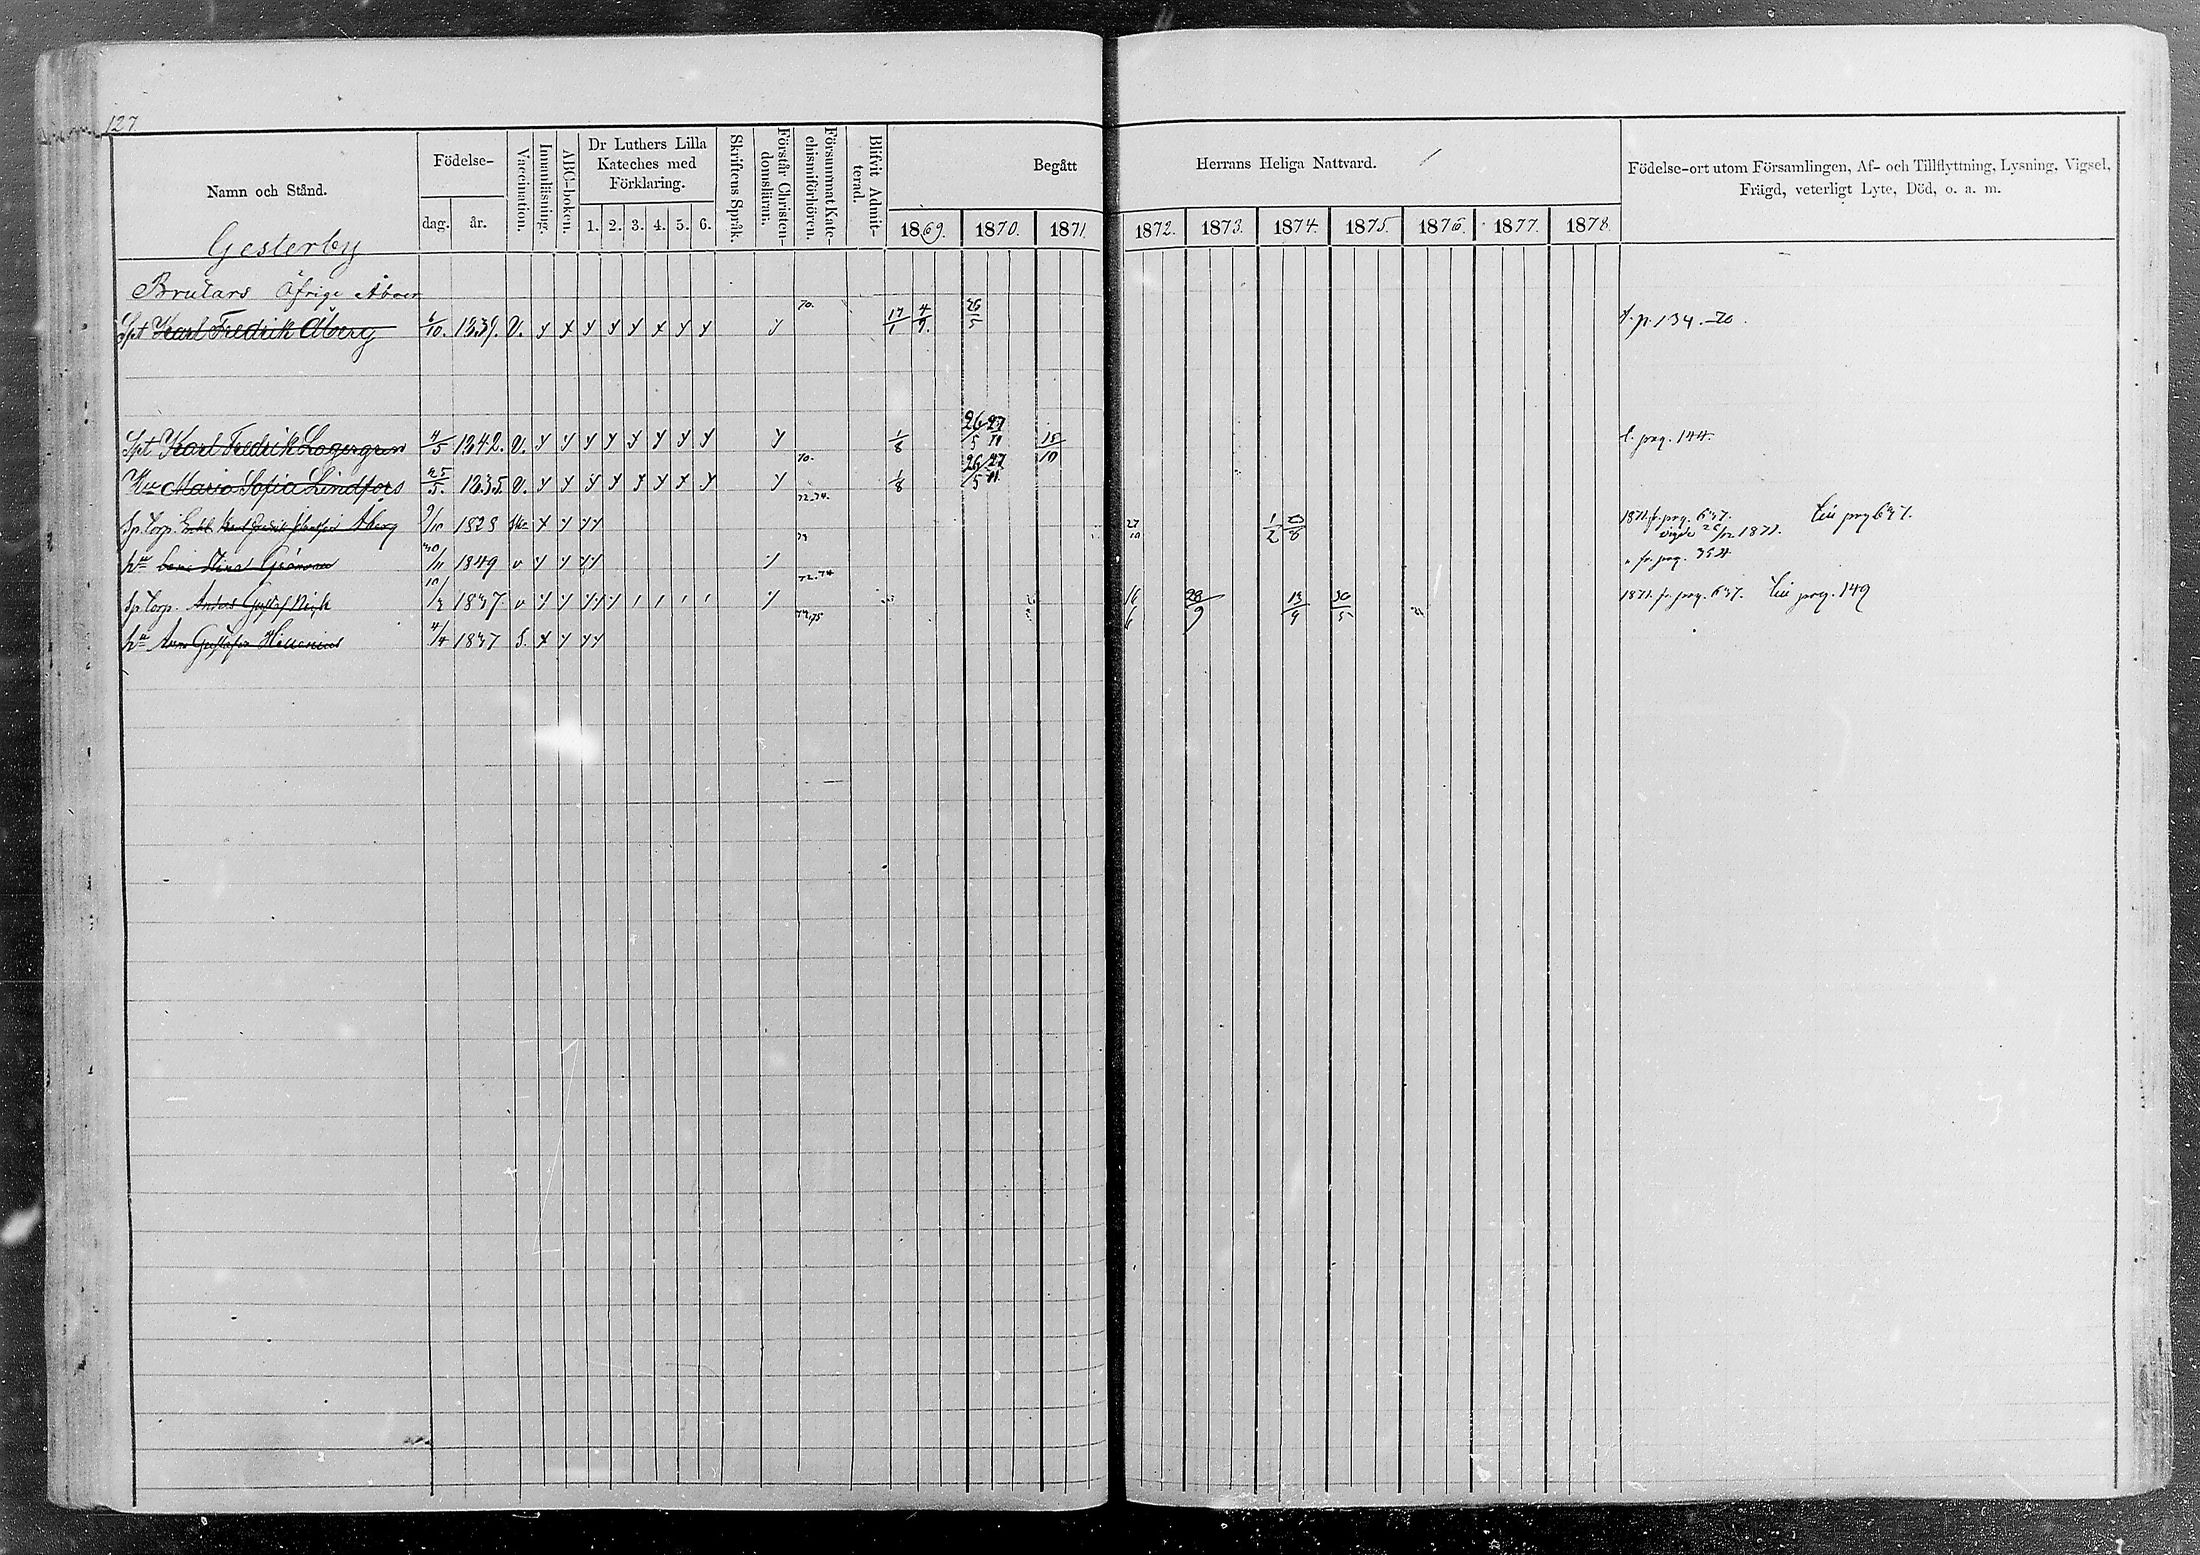 127.
Namn och Stånd.
Födelse-
dag.
år.
Vaccination.
Innanläsning.
ABC-boken.
Dr Luthers Lilla
Kateches med
Förklaring.
1. 2. 3. 4. 5. 6.
Skriftens Språk.
Förstår Christen-
domsläran.
Försummat Kate-
chismiförhören.
Blifvit Admit-
terad.
Begått
Herrans Heliga Nattvard.
1869. 1870. 1871. 1872. 1873. 1874. 1875. 1876. 1877. 1878.
Födelse-ort utom Församlingen, Af- och Tillflyttning, Lysning, Vigsel,
Frägd, veterligt Lyte, Död, o. a. m.
Gesterby
Brusars Öfrige Åboer
Spt Karl Fredrik Åberg /10. 1839. v. y x y y y x y y y 70. 17/1 4/9. 26/5 p. 134. -70.
Spt Karl Fredrik Lagergren 4/5 1842. v. y y y y y y y y y 1/8 26/5 27/11 15/10 pag. 144.
Maria Sofia Lindfors 25/5. 1835. v. y y y y y y y y y 70. 1/8 26/5 27/11
Sp. Torp. Åberg 9/10 1828 x y y y 72.74. 27/10 1/2 1871. fr. pag. 637. pag 637.
vigde 26/12 1871.
hu Stina Grönroos 30/11 1849 v y y y y y 73 " fr. pag. 354
Sp Torp. Anders Gustaf 10/3 1837 v y y y y y y 72.74 16/6 28/9 13/9 30/5 1871. fr. pag. 637. pag. 149
hu Gustafva Hellenius 4/4 1837 S. x y y y 74.75